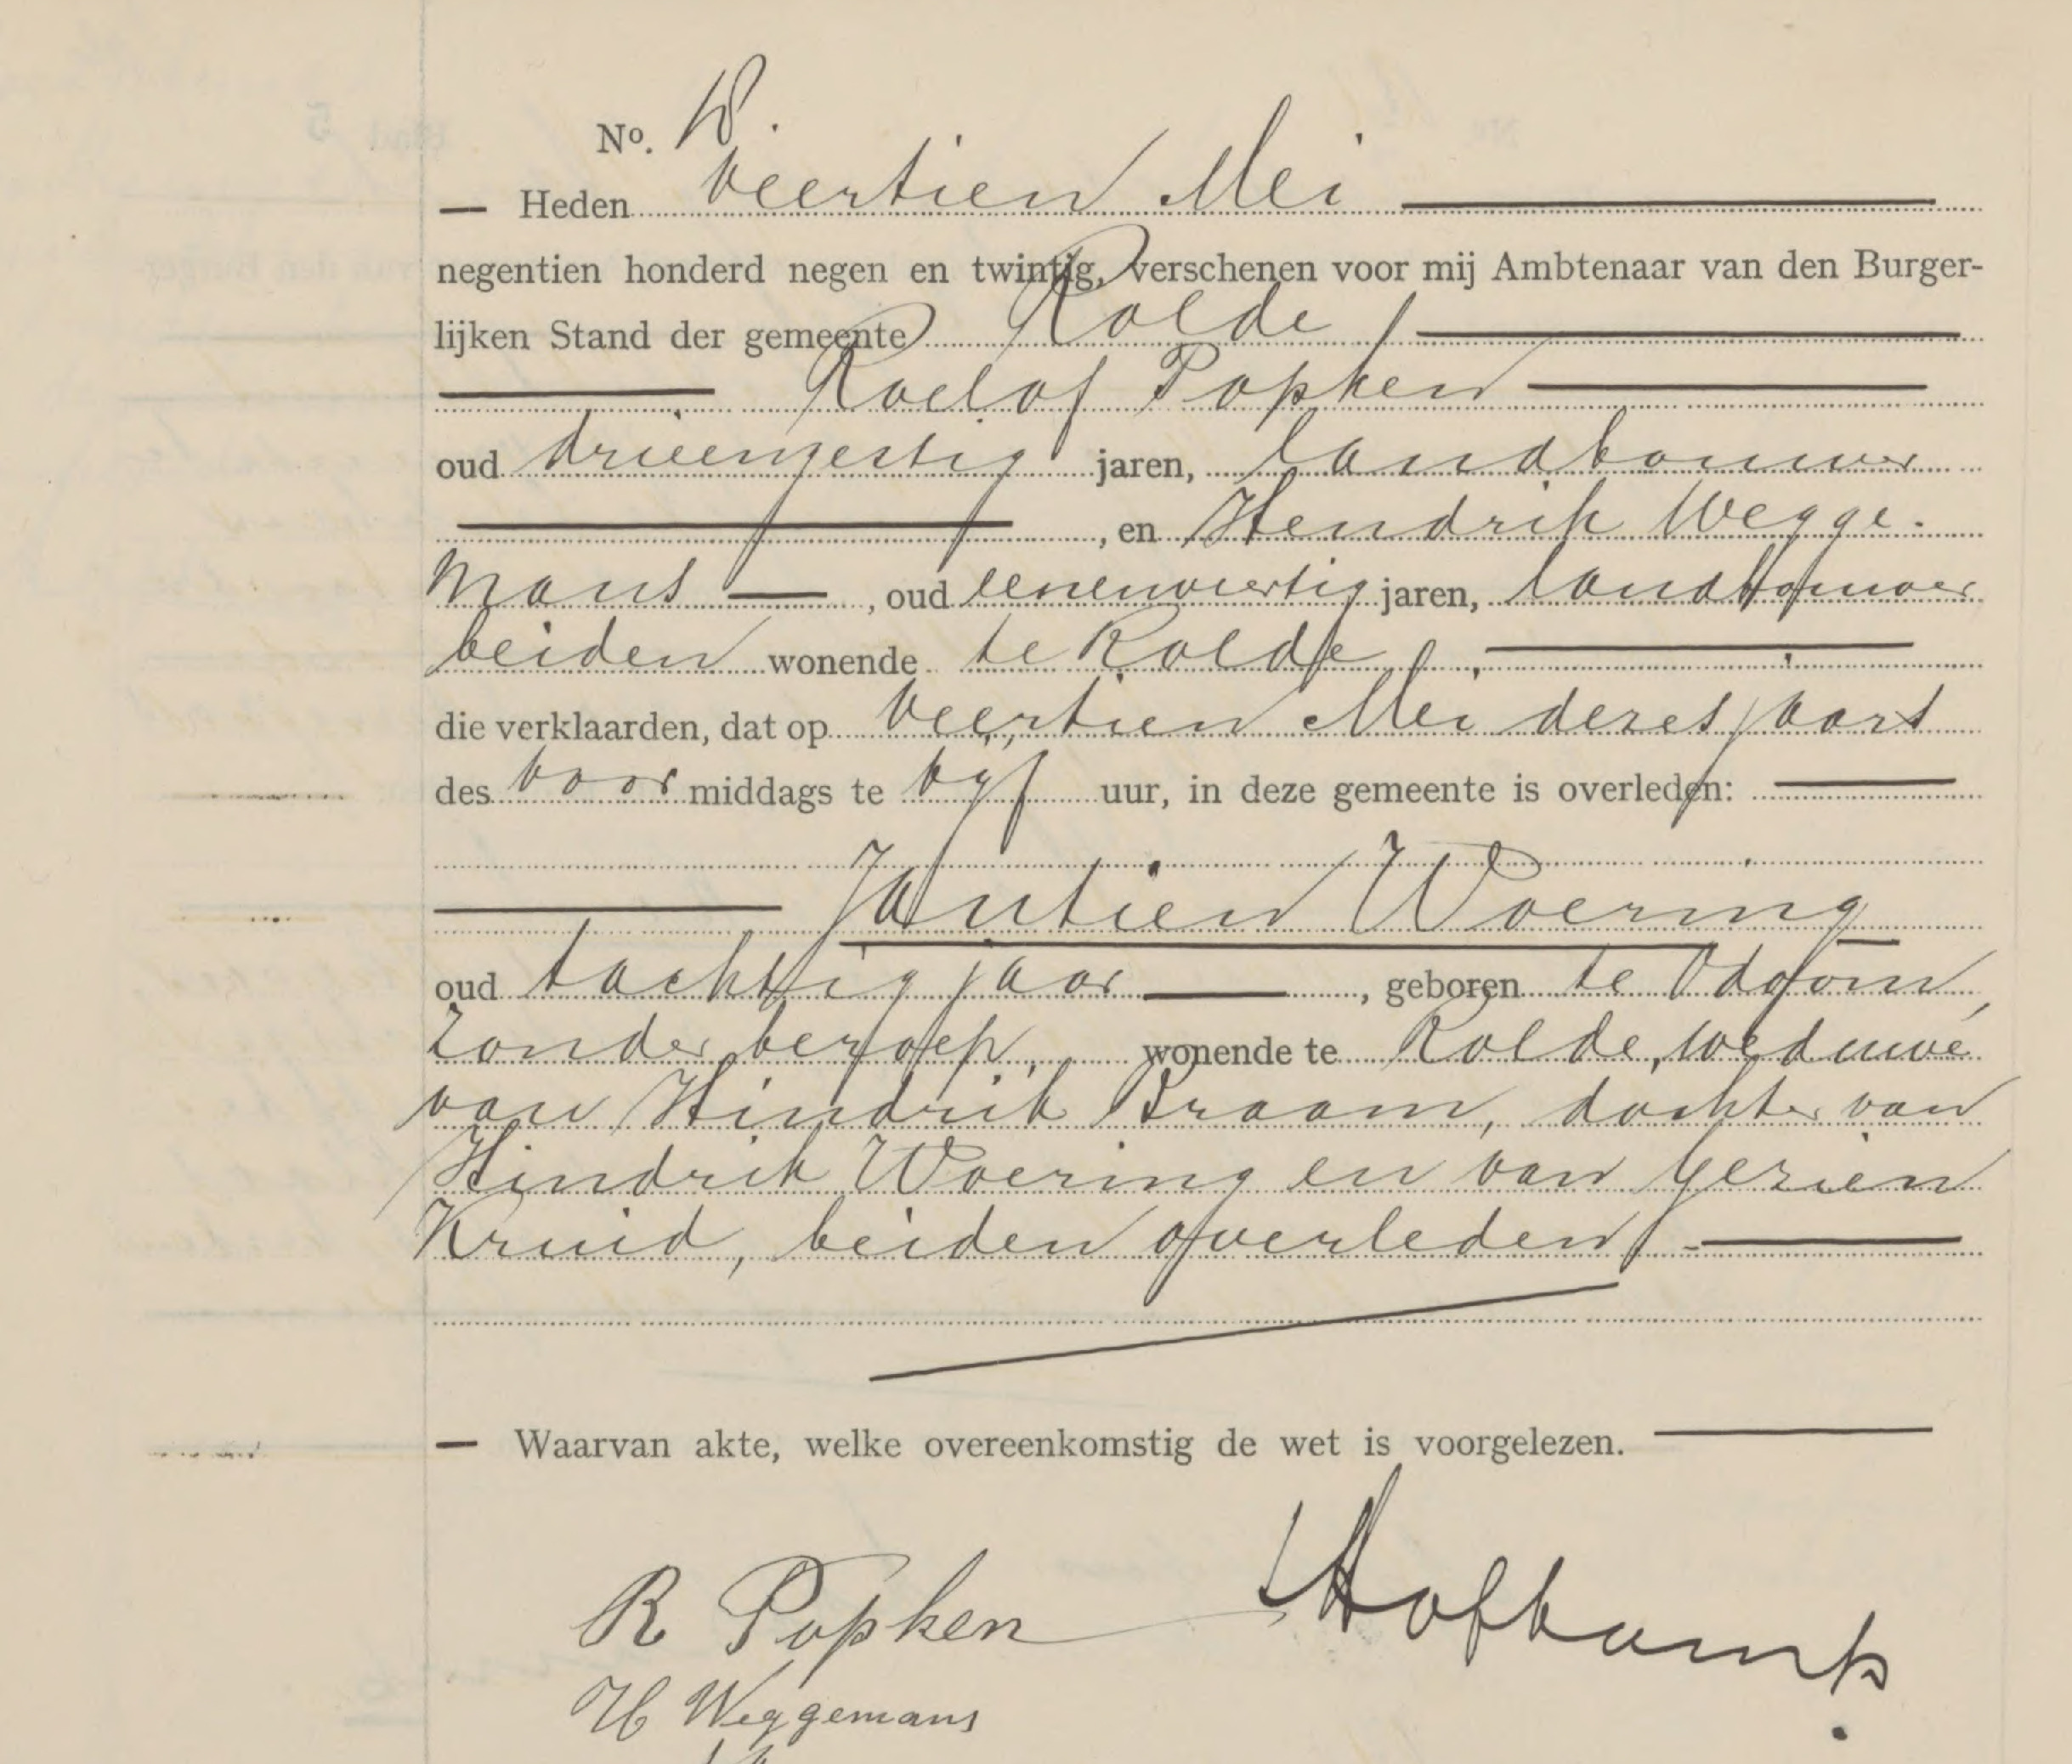 No. 18.
— Heden veertien Mei
negentien honderd negen en twintig, verschenen voor mij Ambtenaar van den Burger-
lijken Stand der gemeente Rolde
Roelof Popken
oud drieenzestig jaren, landbouwer
, en Hendrik Wegge-
mans —, oud eenenveertig jaren, landbouwer
beiden wonende te Rolde,
die verklaarden, dat op veertien Mei dezes jaars
des voor middags te vijf uur, in deze gemeente is overleden:
Jantien Woering
oud tachtig jaar —, geboren te Odoorn,
zonder beroep, wonende te Rolde, weduwe
van Hindrik Braam, dochter van
Hindrik Woering en van Gezien
Kruid, beiden overleden. —
— Waarvan akte, welke overeenkomstig de wet is voorgelezen. —
R Popken
Hofkamp.
H Weggemans